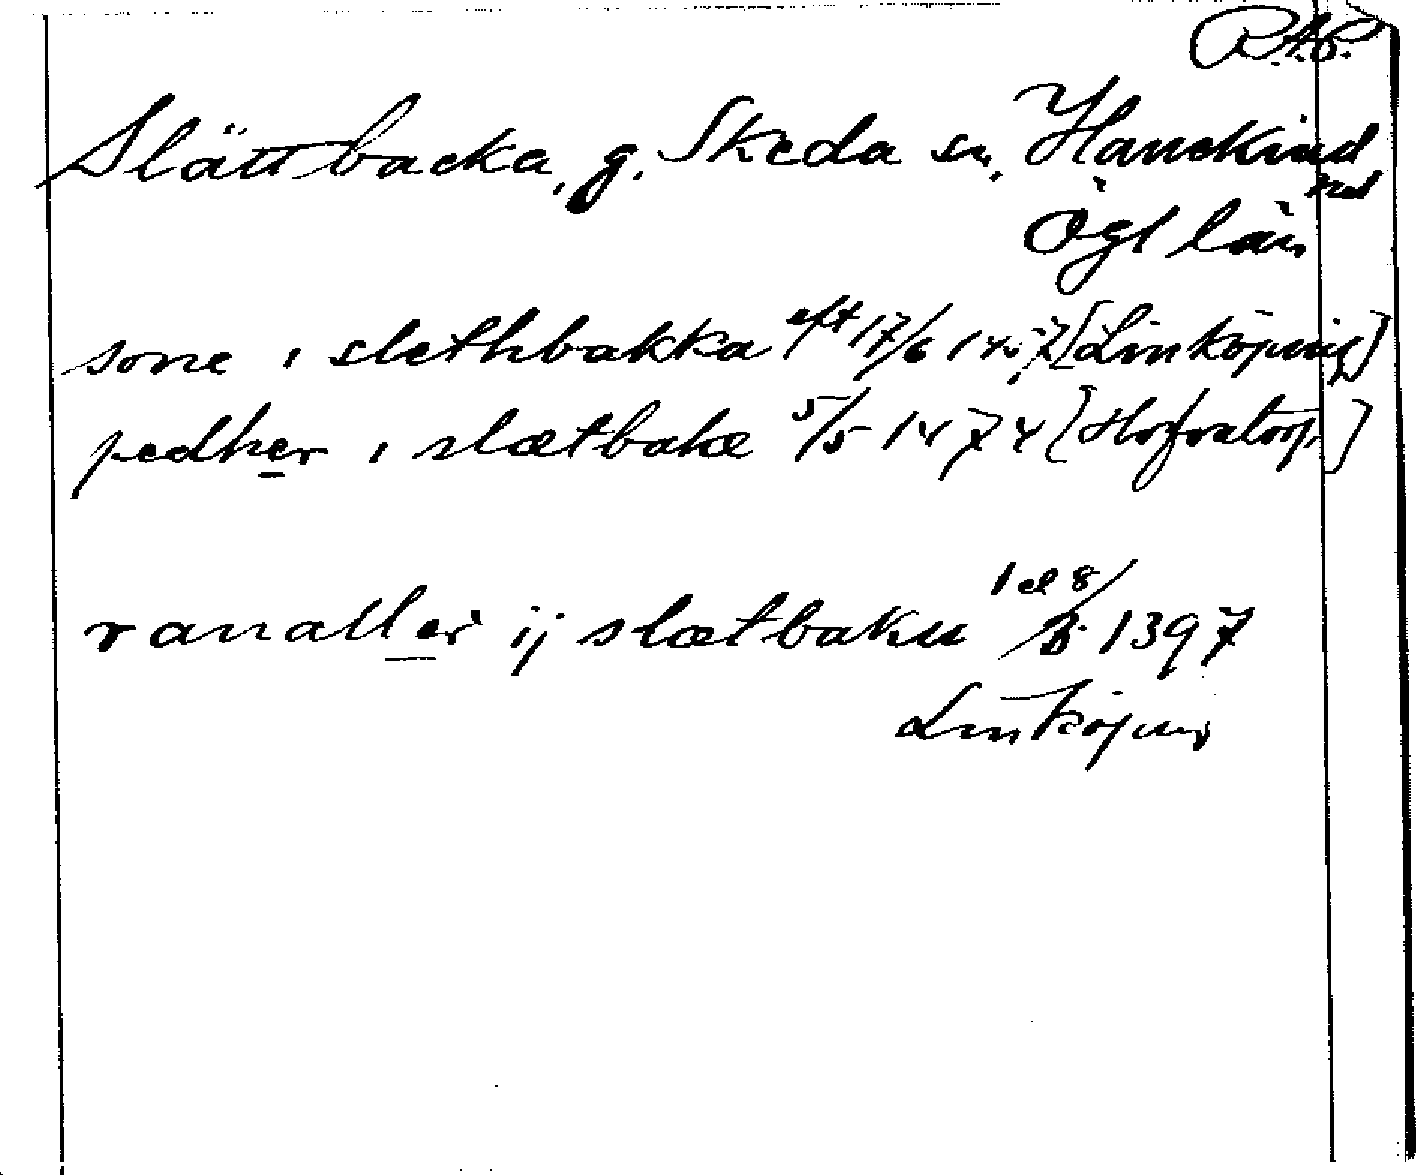 R.A.P.
Slättbacka, g. Skeda sn, Hanekind
hd
Ögl län
sone i slethbakka eft 17/6 [Linköping]
pedher i slætbake 5/5 1474 [Hofratorp]
ranaller ij slætbaku 1 el 8/ 1397
Linköping